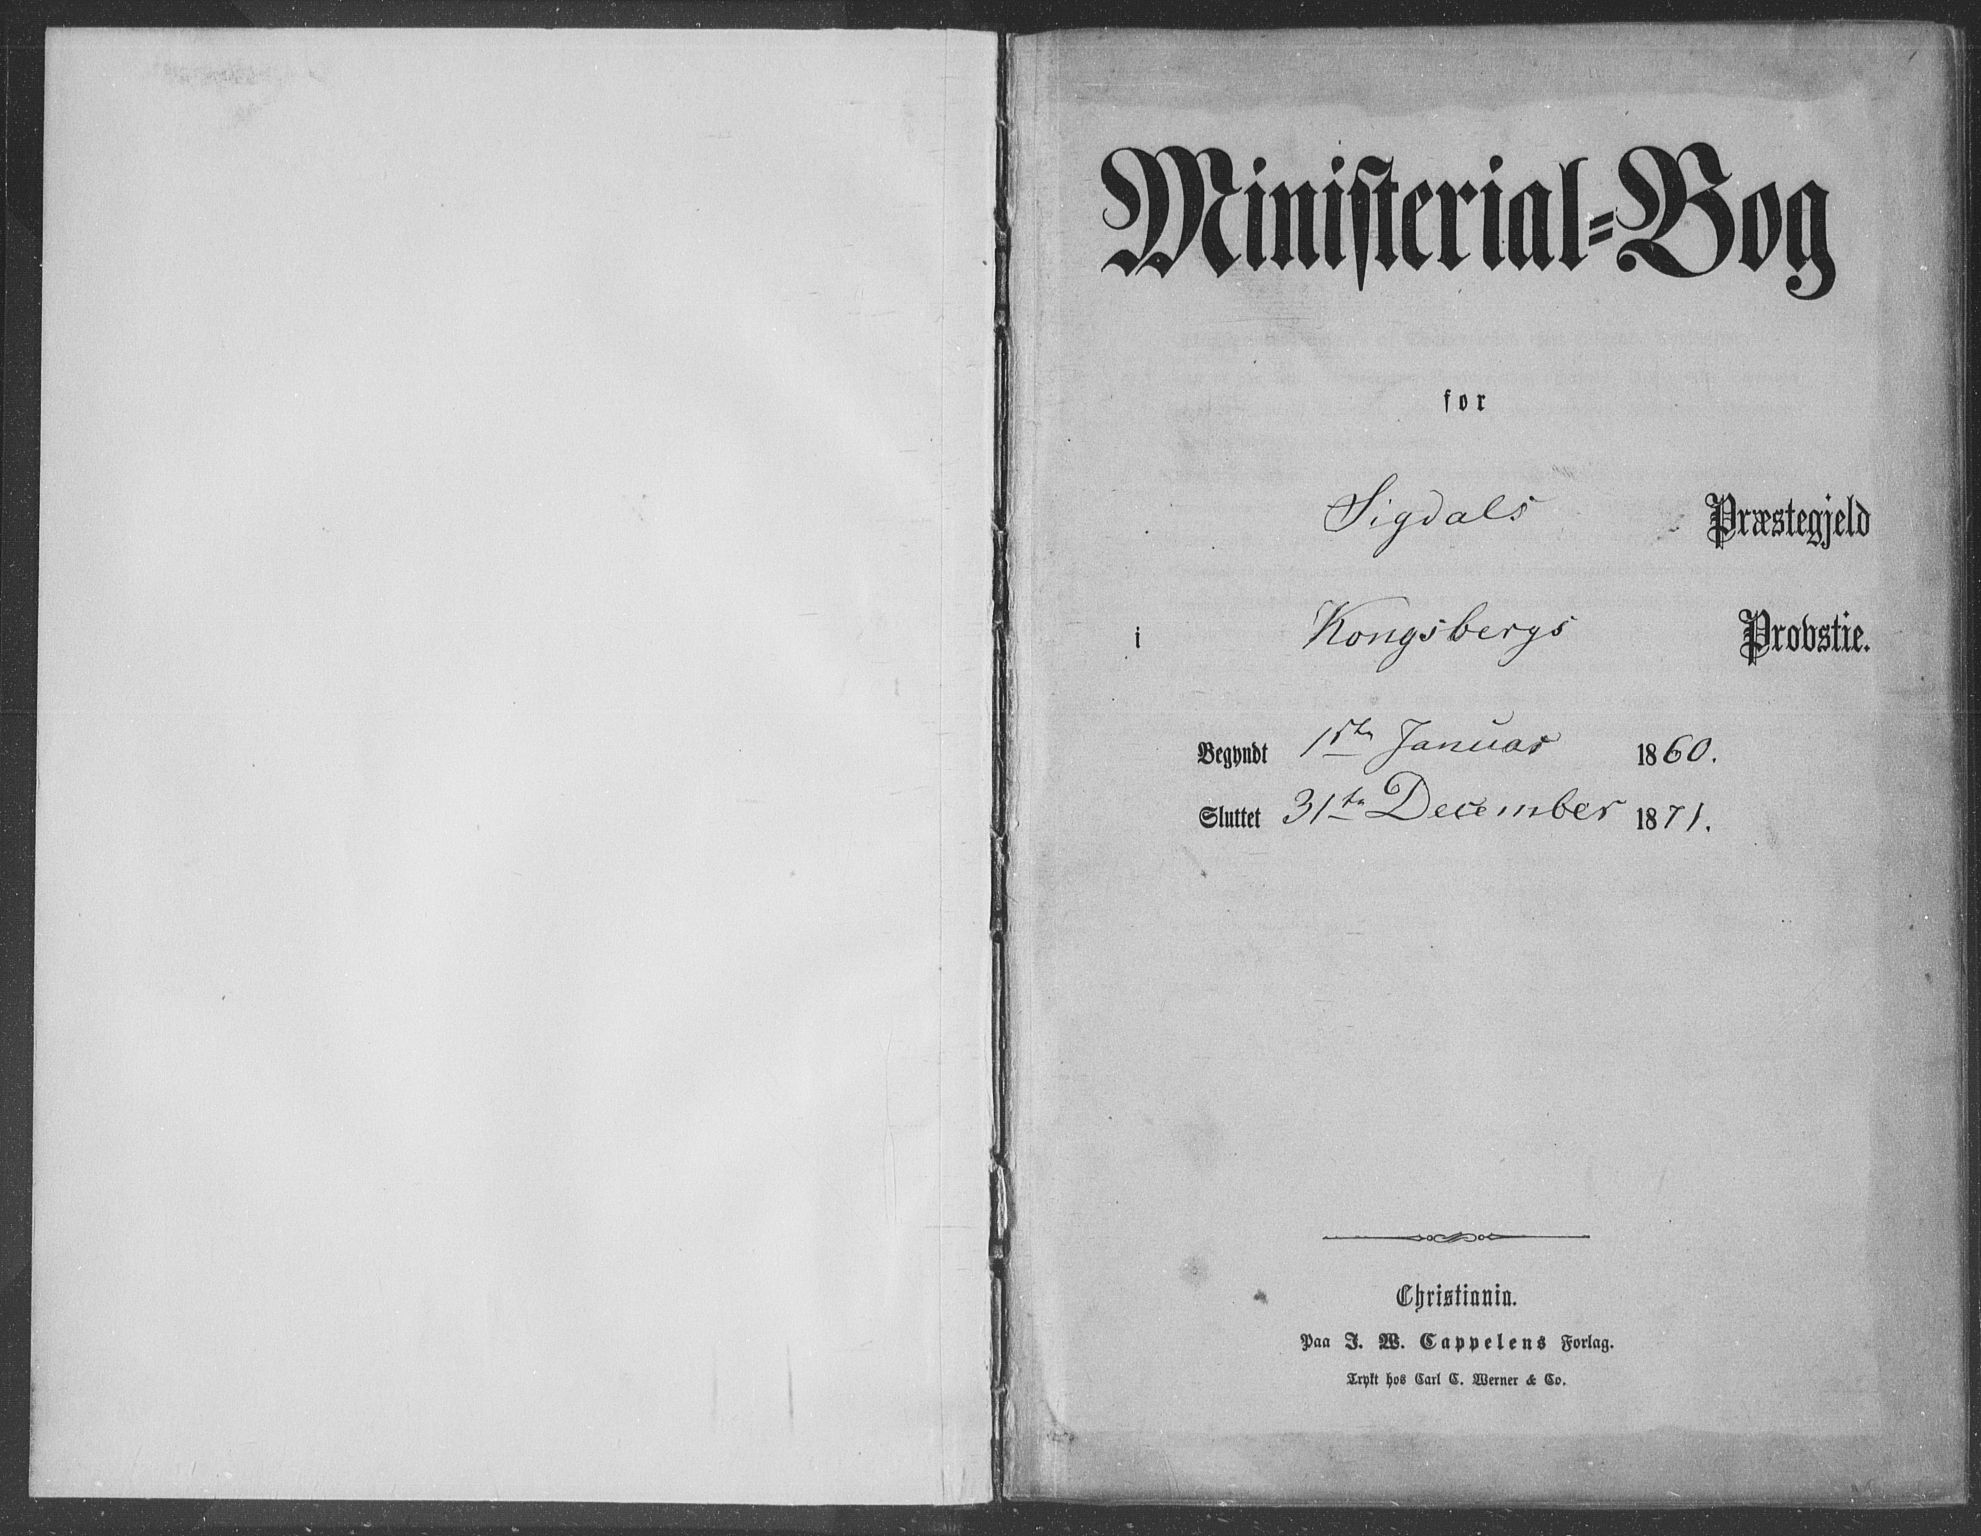 Ministerial-Bog
for
Sigdals Præstegjeld
i Kongsbergs Provstie.
Begyndt 1ste Januar 1860.
Sluttet 31te December 1871.
Christiania.
Paa J. W. Cappelens Forlag.
Trykt hos Carl C. Werner & Co.